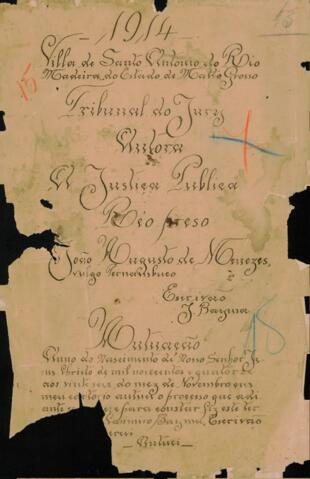 1914
15
Villa de Santo Antonio do Rio
Madeira do Estado de Matto Grosso
15
Tribunal do Jury
Autora
A Justiça Publica
Réo preso
João Augusto de Menezes,
vulgo Pernambuco
Escrivão
J. Bayma
18
Autuação
Anno do Nascimento de Nosso Senhor Je-
sus Christo de mil novecentos e quatorze
aos vinte seis do mez de Novembro em
meu cartorio autuei o processo que adi
ante se para constar fiz este ter
Bayma, Escrivão
Autuei